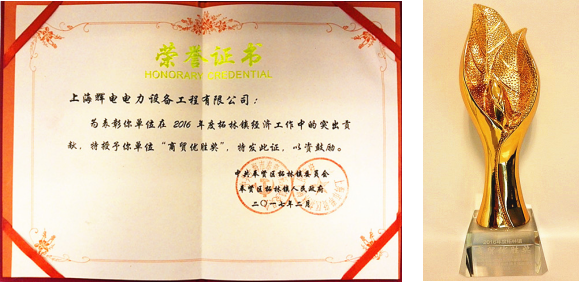 荣誉证书
HONORARY CREDENTIAL
上海辉电电力设备工程有限公司：
为表彰你单位在 2016 年度柘林镇经济工作中的突出贡
献，特授予你单位“商贸优胜奖”，特发此证，以资鼓励。
中共奉贤区柘林镇委员会
奉贤区柘林镇人民政府
二〇一七年二月